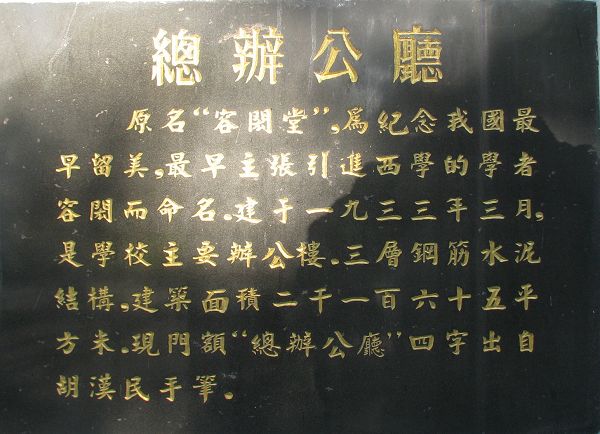 總辦公廳
原名“容閎堂”,爲紀念我國最
早留美,最早主張引進西學的學者
容閎而命名.建于一九三三年三月,
是學校主要辦公樓.三層鋼筋水泥
結構,建築面積二千一百六十五平
方米.現門額“總辦公廳”四字出自
胡漢民手筆。